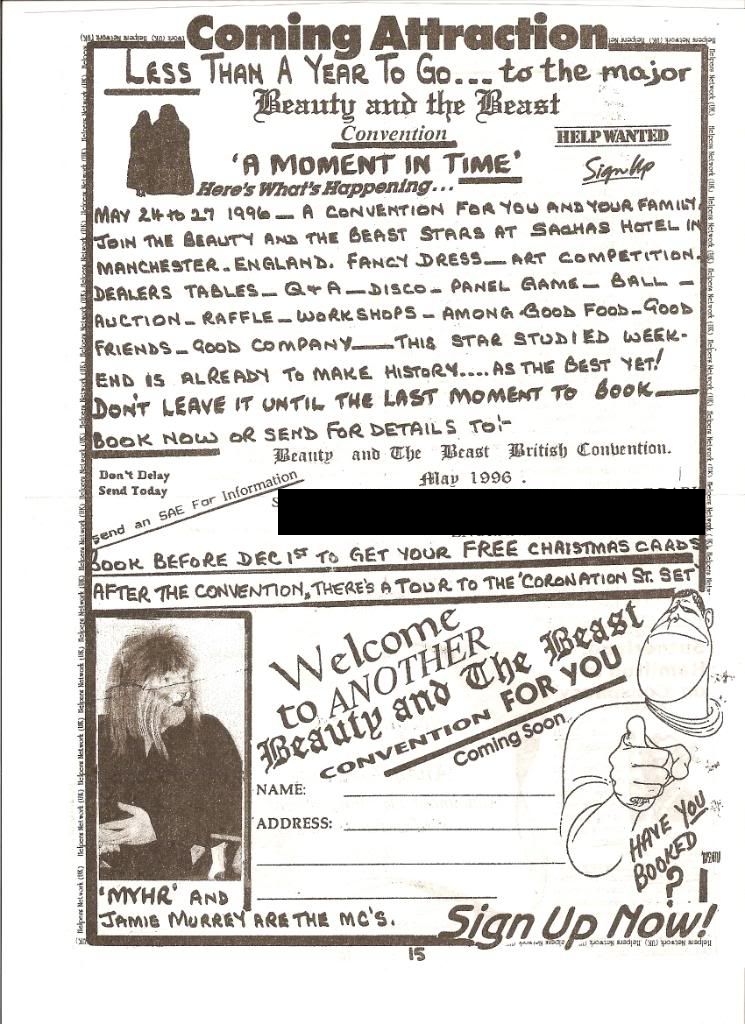 Coming Attraction
LESS THAN A YEAR TO GO... to the major
Beauty and the Beast
Convention
HELP WANTED
'A MOMENT IN TIME'
Sign Up
Here's What's Happening...
MAY 24 to 27 1996 — A CONVENTION FOR YOU AND YOUR FAMILY.
JOIN THE BEAUTY AND THE BEAST STARS AT SACHAS HOTEL IN
MANCHESTER. ENGLAND. FANCY DRESS — ART COMPETITION.
DEALERS TABLES — Q & A — DISCO — PANEL GAME — BALL —
AUCTION — RAFFLE — WORKSHOPS — AMONG GOOD FOOD — GOOD
FRIENDS — GOOD COMPANY — THIS STAR STUDIED WEEK-
END IS ALREADY TO MAKE HISTORY.... AS THE BEST YET!
DON'T LEAVE IT UNTIL THE LAST MOMENT TO BOOK —
BOOK NOW OR SEND FOR DETAILS TO:-
Beauty and The Beast British Convention.
May 1996 .
Don't Delay
Send Today
Send an SAE For Information
BOOK BEFORE DEC 1st TO GET YOUR FREE CHRISTMAS CARDS
AFTER THE CONVENTION, THERE'S A TOUR TO THE 'CORONATION ST. SET'
Welcome
to ANOTHER
Beauty and The Beast
CONVENTION FOR YOU
Coming Soon
NAME:
ADDRESS:
HAVE YOU
BOOKED
?
'MYHR' AND
JAMIE MURREY ARE THE MC'S.
Sign Up Now!
15
Helpers Network (UK)